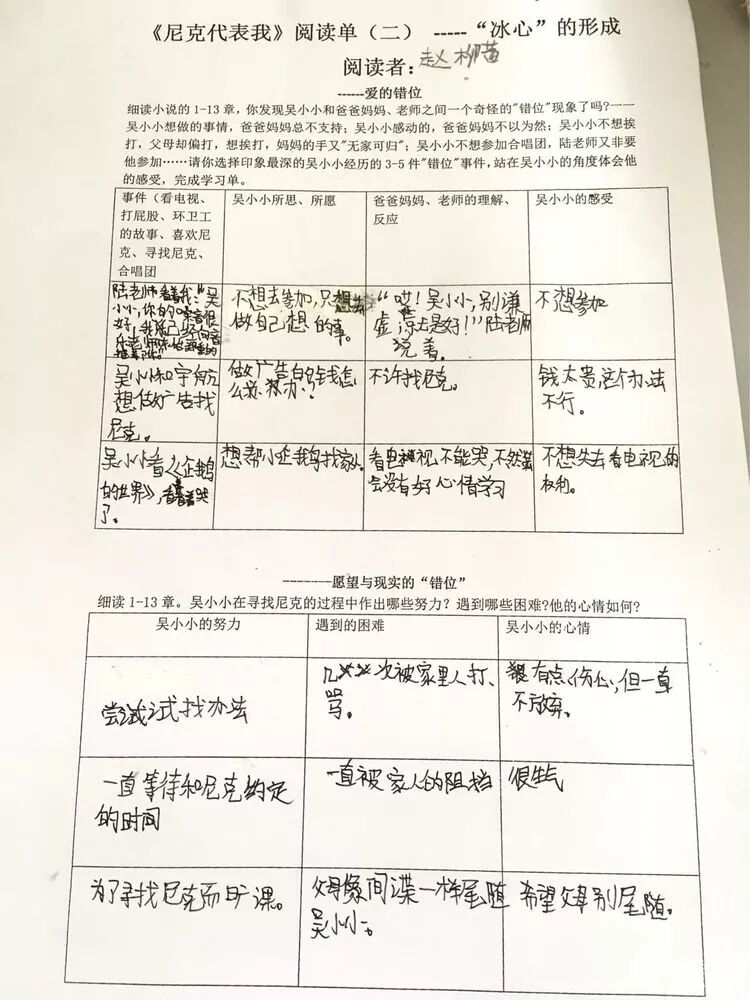 《尼克代表我》阅读单（二） -----“冰心”的形成
阅读者：赵柳茜
------爱的错位
细读小说的1-13章，你发现吴小小和爸爸妈妈、老师之间一个奇怪的"错位"现象了吗?一一
吴小小想做的事情，爸爸妈妈总不支持；吴小小感动的，爸爸妈妈不以为然；吴小小不想挨
打，父母却偏打，想挨打，妈妈的手又"无家可归"；吴小小不想参加合唱团，陆老师又非要
他参加……请你选择印象最深的吴小小经历的3-5件"错位"事件，站在吴小小的角度体会他
的感受，完成学习单。
事件（看电视、
打屁股、环卫工
的故事、喜欢尼
克、寻找尼克、
合唱团
吴小小所思、所愿
爸爸妈妈、老师的理解、
反应
吴小小的感受
陆老师看着我:"吴
小小,你的嗓音很
好,我已经向音
乐老师
不想去参加,只想去
做自己想的事。
“哎！吴小小,别谦
虚,
去是好！”陆老师
说着。
不想参加
吴小小和宇航
想做广告找
尼克。
做广告的钱怎
么办?
不许找尼克。
钱太贵,这个办法
不行。
吴小小看《企鹅
的世界》,看着哭
了。
想帮小企鹅找家人
看电视不能哭,不然
会没有好心情学习
不想失去看电视的
权利。
--------愿望与现实的“错位”
细读1-13章。吴小小在寻找尼克的过程中作出哪些努力？遇到哪些困难?他的心情如何?
吴小小的努力
遇到的困难
吴小小的心情
尝试式找办法
几次被家里人打、
骂。
有点伤心,但一直
不放弃。
一直等待和尼克约定
的时间
一直被家人的阻挡
很生气
为了寻找尼克而旷课。
父母像间谍一样尾随
吴小小。
希望父母别尾随。